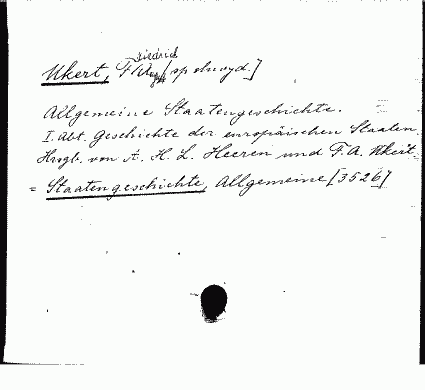 Ukert, Friedrich Aug[
Allgemeine Staatengeschichte.
I. Abt. Geschichte der europäischen Staaten
Hrsgb. von A. H. L. Heeren und F. A. Ukert
= Staatengeschichte, Allgemeine [3526]